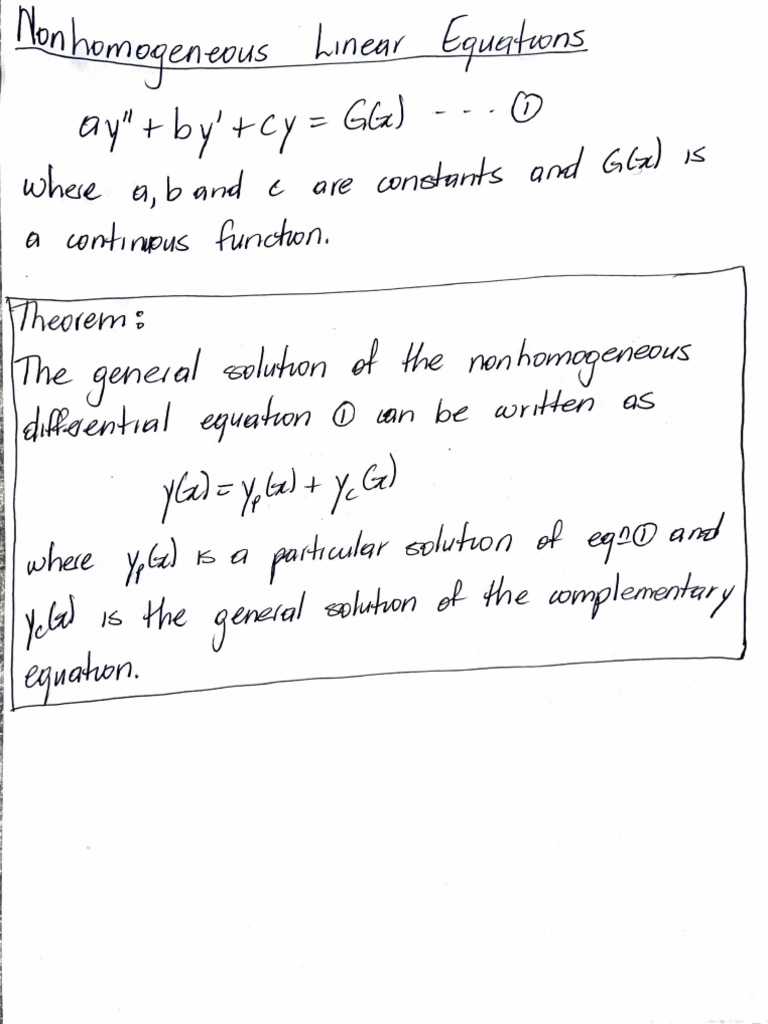 Nonhomogeneous Linear Equations
ay'' + by' + cy = G(x) --- ①
where a, b and c are constants and G(x) is
a continuous function.
Theorem:
The general solution of the nonhomogeneous
differential equation ① can be written as
y(x) = yₚ(x) + y_c(x)
where yₚ(x) is a particular solution of eqn ① and
y_c(x) is the general solution of the complementary
equation.